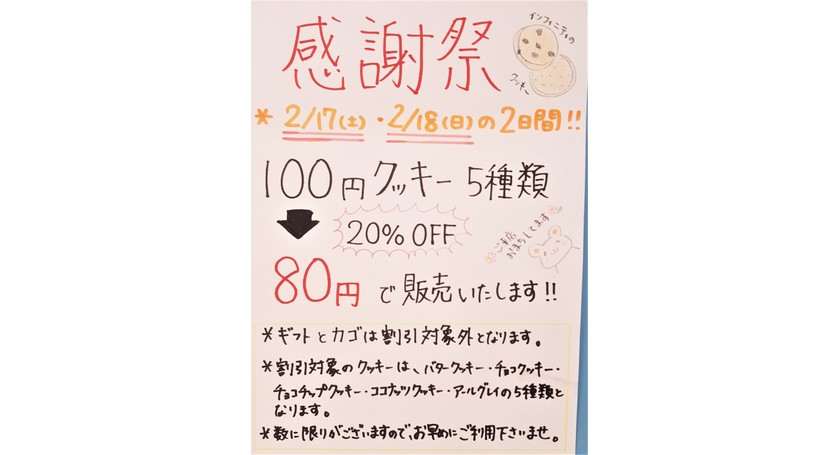 感謝祭
インフィニティの
クッキー
* 2/17(土)・2/18(日)の2日間!!
100円クッキー 5種類
20% OFF
ご来店
おまちしてます
80円で販売いたします!!
*ギフトとカゴは割引対象外となります。
*割引対象のクッキーは、バタークッキー・チョコクッキー・
チョコチップクッキー・ココナッツクッキー・アールグレイの5種類と
なります。
*数に限りがございますので、お早めにご利用下さいませ。